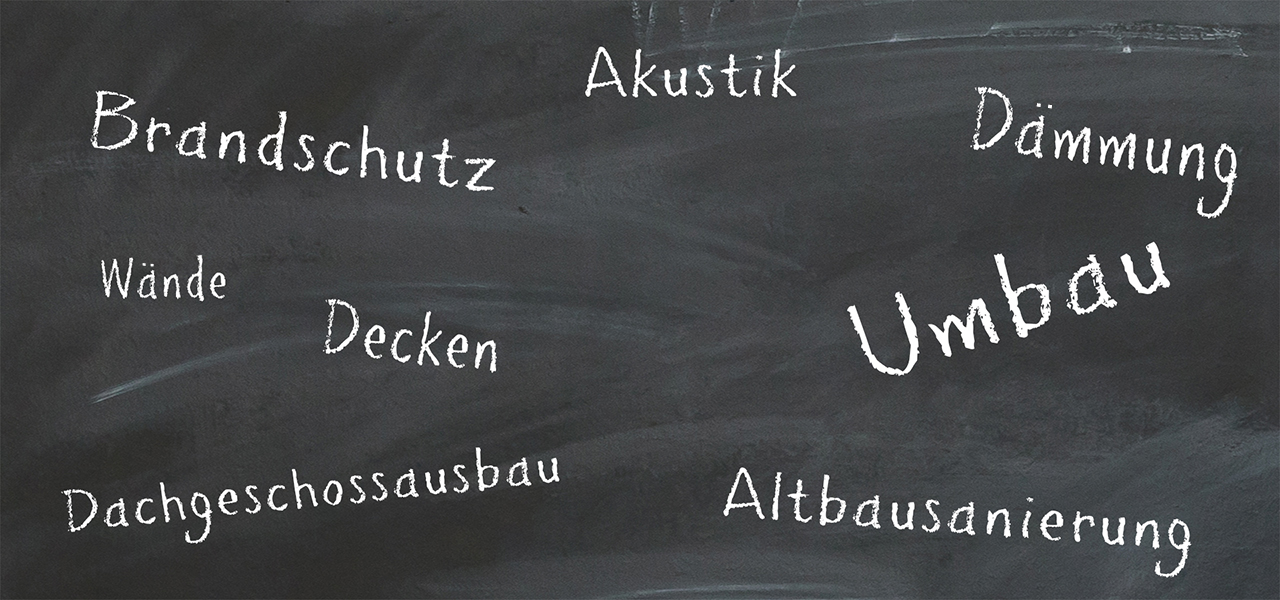 Akustik
Brandschutz
Dämmung
Wände
Decken
Umbau
Dachgeschossausbau
Altbausanierung